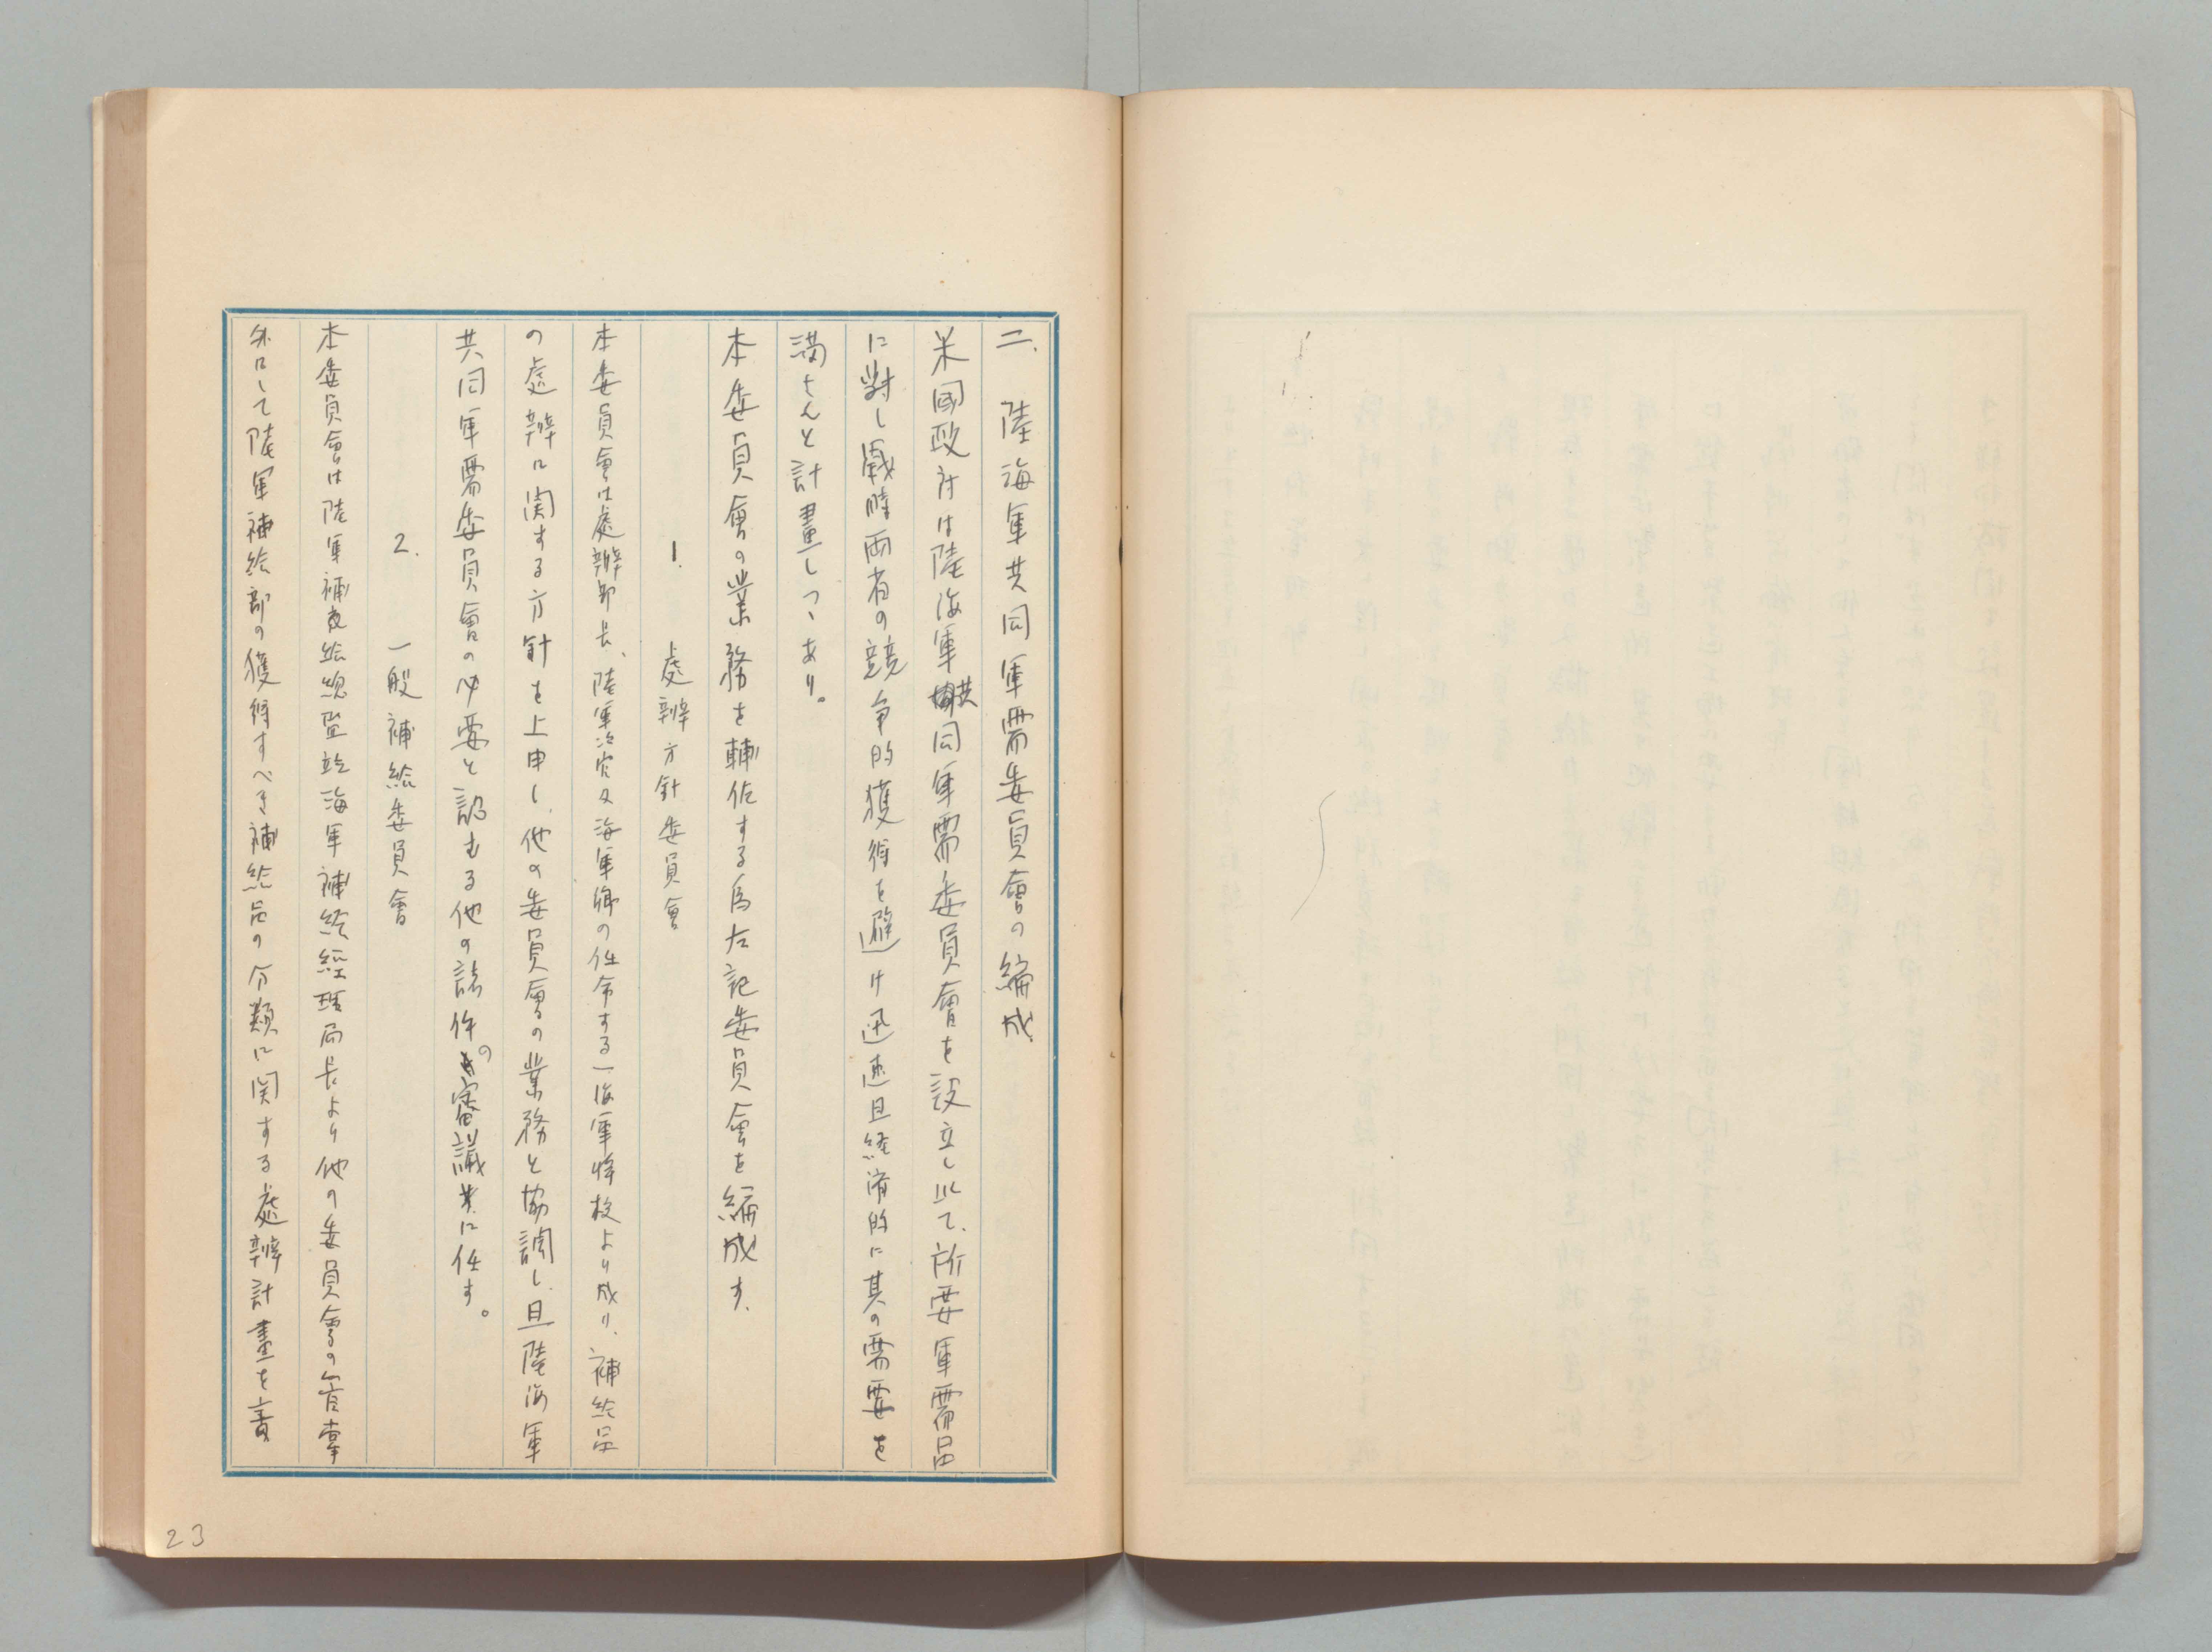 二、陸海軍共同軍需委員會の編成
米國政府は陸海軍共同軍需委員會を設立し以て、所要軍需品
に對し戰時両者の競争的獲得を避け迅速且経済的に其の需要を
満さんと計畫しつゝあり。
本委員會の業務を輔佐する為左記委員會を編成す、
1. 處辨方針委員會
本委員會は處辨部長、陸軍次官及海軍卿の任命する一海軍將校より成り、補給品
の處辨に関する方針を上申し、他の委員會の業務と協調し、且陸海軍
共同軍需委員會の必要と認むる他の諸件の審議に任す。
2. 一般補給委員會
本委員會は陸軍補給総監並海軍補給經理局長より他の委員會の管掌
外にして陸軍補給部の獲得すべき補給品の分類に関する處辨計畫を責
23